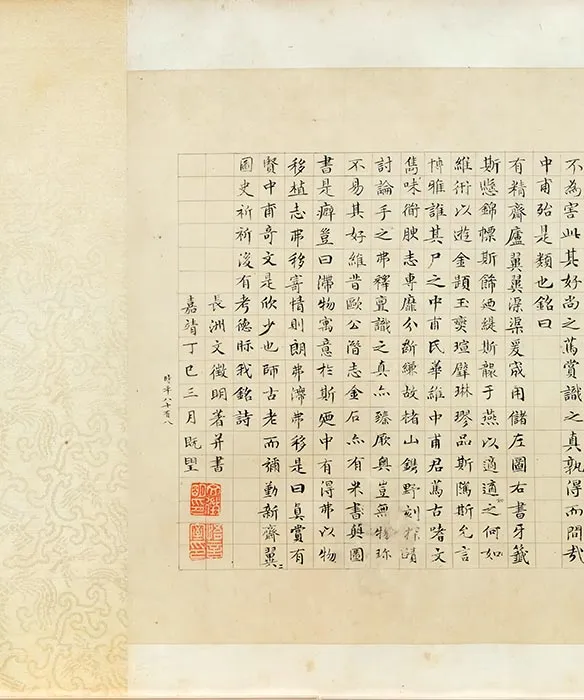 不為害此其好尚之篤賞識之真孰得而間哉
中甫殆是類也銘曰
有精齋廬翼翼渠渠爰宬用儲左圖右書牙籤
斯懸錦幖斯飾迺緹斯襲于燕以適適之何如
維衎以遊金題玉躞瑄璧琳璆品斯隲斯允言
博雅誰其尸之中甫氏華維中甫君篤古嗜文
雋味衜腴志專靡分斷縑故楮山鐫野刻探賾
討論手之弗釋亶識之真亦臻厥奧豈無物珍
不易其好維昔歐公潛志金石亦有米書薜圖
書是癖豈曰滯物寓意於斯迺中有得弗以物
移植志弗移寄情則朗弗滯弗移是曰真賞有
賢中甫奇文是欣少也師古老而彌勤新齋翼〻
圖史祈祈後有考德眎我銘詩
長洲文徵明著并書
嘉靖丁巳三月既望
時年八十有八
文徵明印
悟言室印